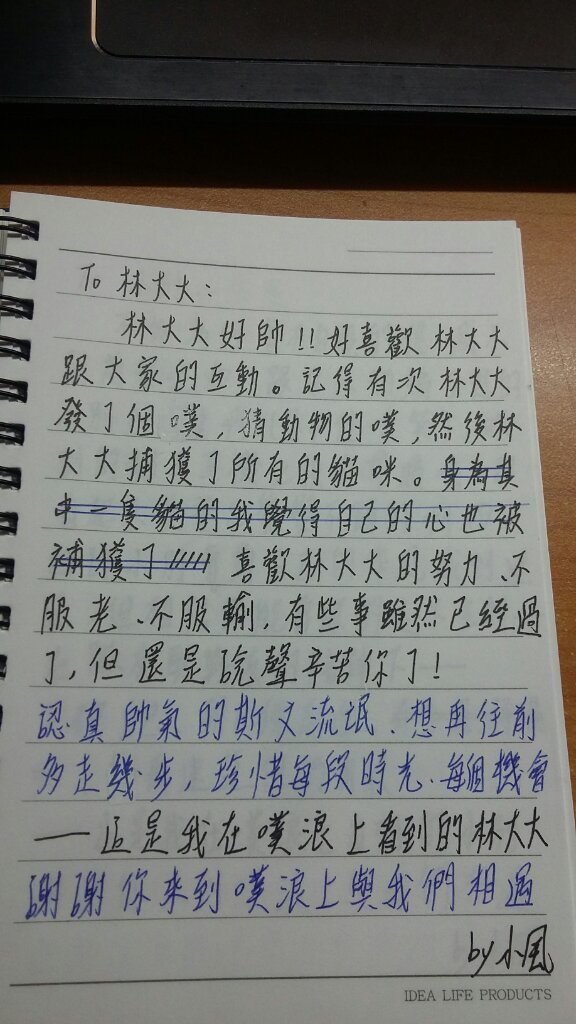 To 林大大:
林大大好帥!!好喜歡 林大大
跟大家的互動。記得有次 林大大
發了個噗,猜動物的噗,然後林
大大捕獲了所有的貓咪。身為其
中一隻貓的我覺得自己的心也被
補獲了///// 喜歡林大大的努力、不
服老、不服輸,有些事雖然已經過
了,但還是說聲辛苦你了!
認真帥氣的斯文流氓、想再往前
多走幾步,珍惜每段時光、每個機會
——這是我在噗浪上看到的林大大
謝謝你來到噗浪上與我們相遇
by 小風
IDEA LIFE PRODUCTS